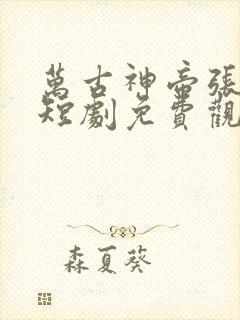 萬古神帝張
短劇免費觀
森夏葵